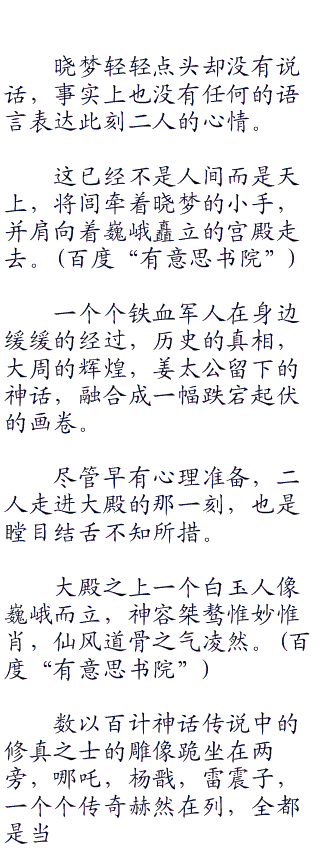 晓梦轻轻点头却没有说
话，事实上也没有任何的语
言表达此刻二人的心情。
这已经不是人间而是天
上，将闾牵着晓梦的小手，
并肩向着巍峨矗立的宫殿走
去。(百度“有意思书院”)
一个个铁血军人在身边
缓缓的经过，历史的真相，
大周的辉煌，姜太公留下的
神话，融合成一幅跌宕起伏
的画卷。
尽管早有心理准备，二
人走进大殿的那一刻，也是
瞠目结舌不知所措。
大殿之上一个白玉人像
巍峨而立，神容桀骜惟妙惟
肖，仙风道骨之气凌然。(百
度“有意思书院”)
数以百计神话传说中的
修真之士的雕像跪坐在两
旁，哪吒，杨戬，雷震子，
一个个传奇赫然在列，全都
是当